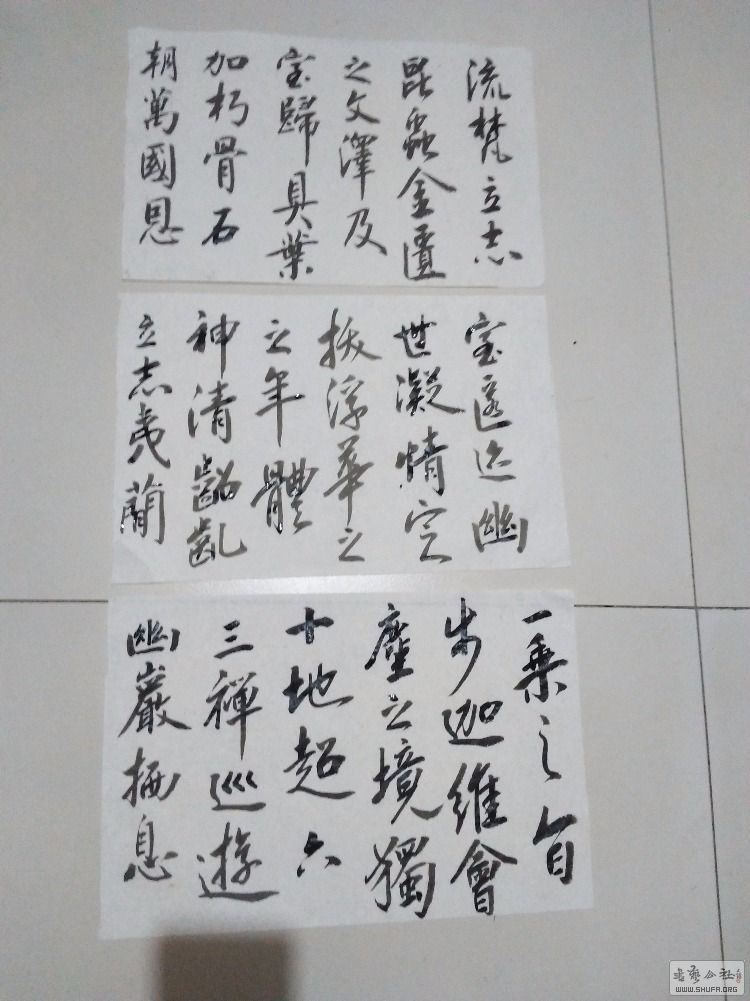 朝萬國恩
加朽骨石
室歸具葉
之文澤及
昆蟲金匱
流梵立志
立志夷蕳
神清齠齔
之年體
拔浮華之
世凝情定
室匿迹幽
幽巖栖息
三禪巡遊
十地超六
塵之境獨
步迦維會
一乘之旨
书艺公社
WWW.SHUFA.ORG